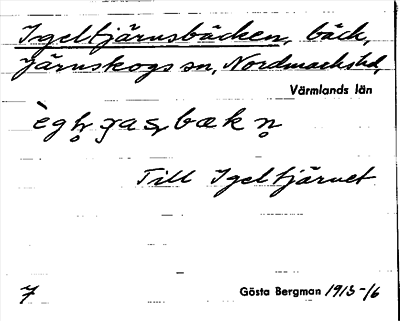 Igeltjärnsbäcken, bäck,
Järnskogs sn, Nordmarks hd,
Värmlands län
Till Igeltjärnet
7
Gösta Bergman 1915-16